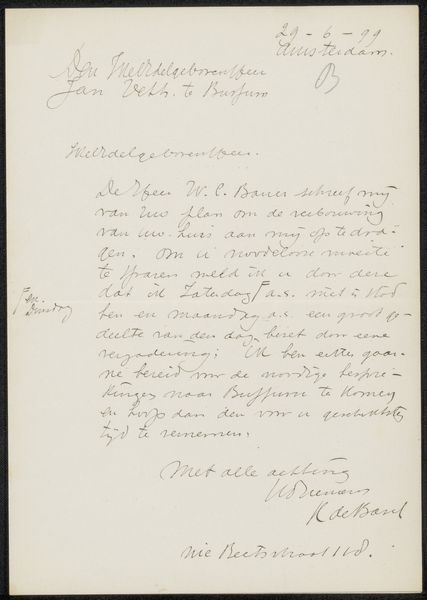 29-6-99
Amsterdam.
B
Den WelEdelgeboren Heer
Jan Veth. te Bussum
WelEdelgeboren Heer.
De Heer W. C. Bauer schreef mij
van Uw plan om de verbouwing
van uw huis aan mij op te dra-
gen. Om u noodeloose moeite
te sparen meld ik u door deze
dat ik Zaterdag a.s. niet in stad
en Dinsdag
ben en maandag a.s. een groot ge-
deelte van den dag bezet door eene
vergadering; Ik ben echter gaar-
ne bereid voor de noodige bespre-
kingen naar Bussum te komen
en hoop dan den voor u geschiktsten
tijd te vernemen.
Met alle achting
UEdienaar
K de Bazel
118.